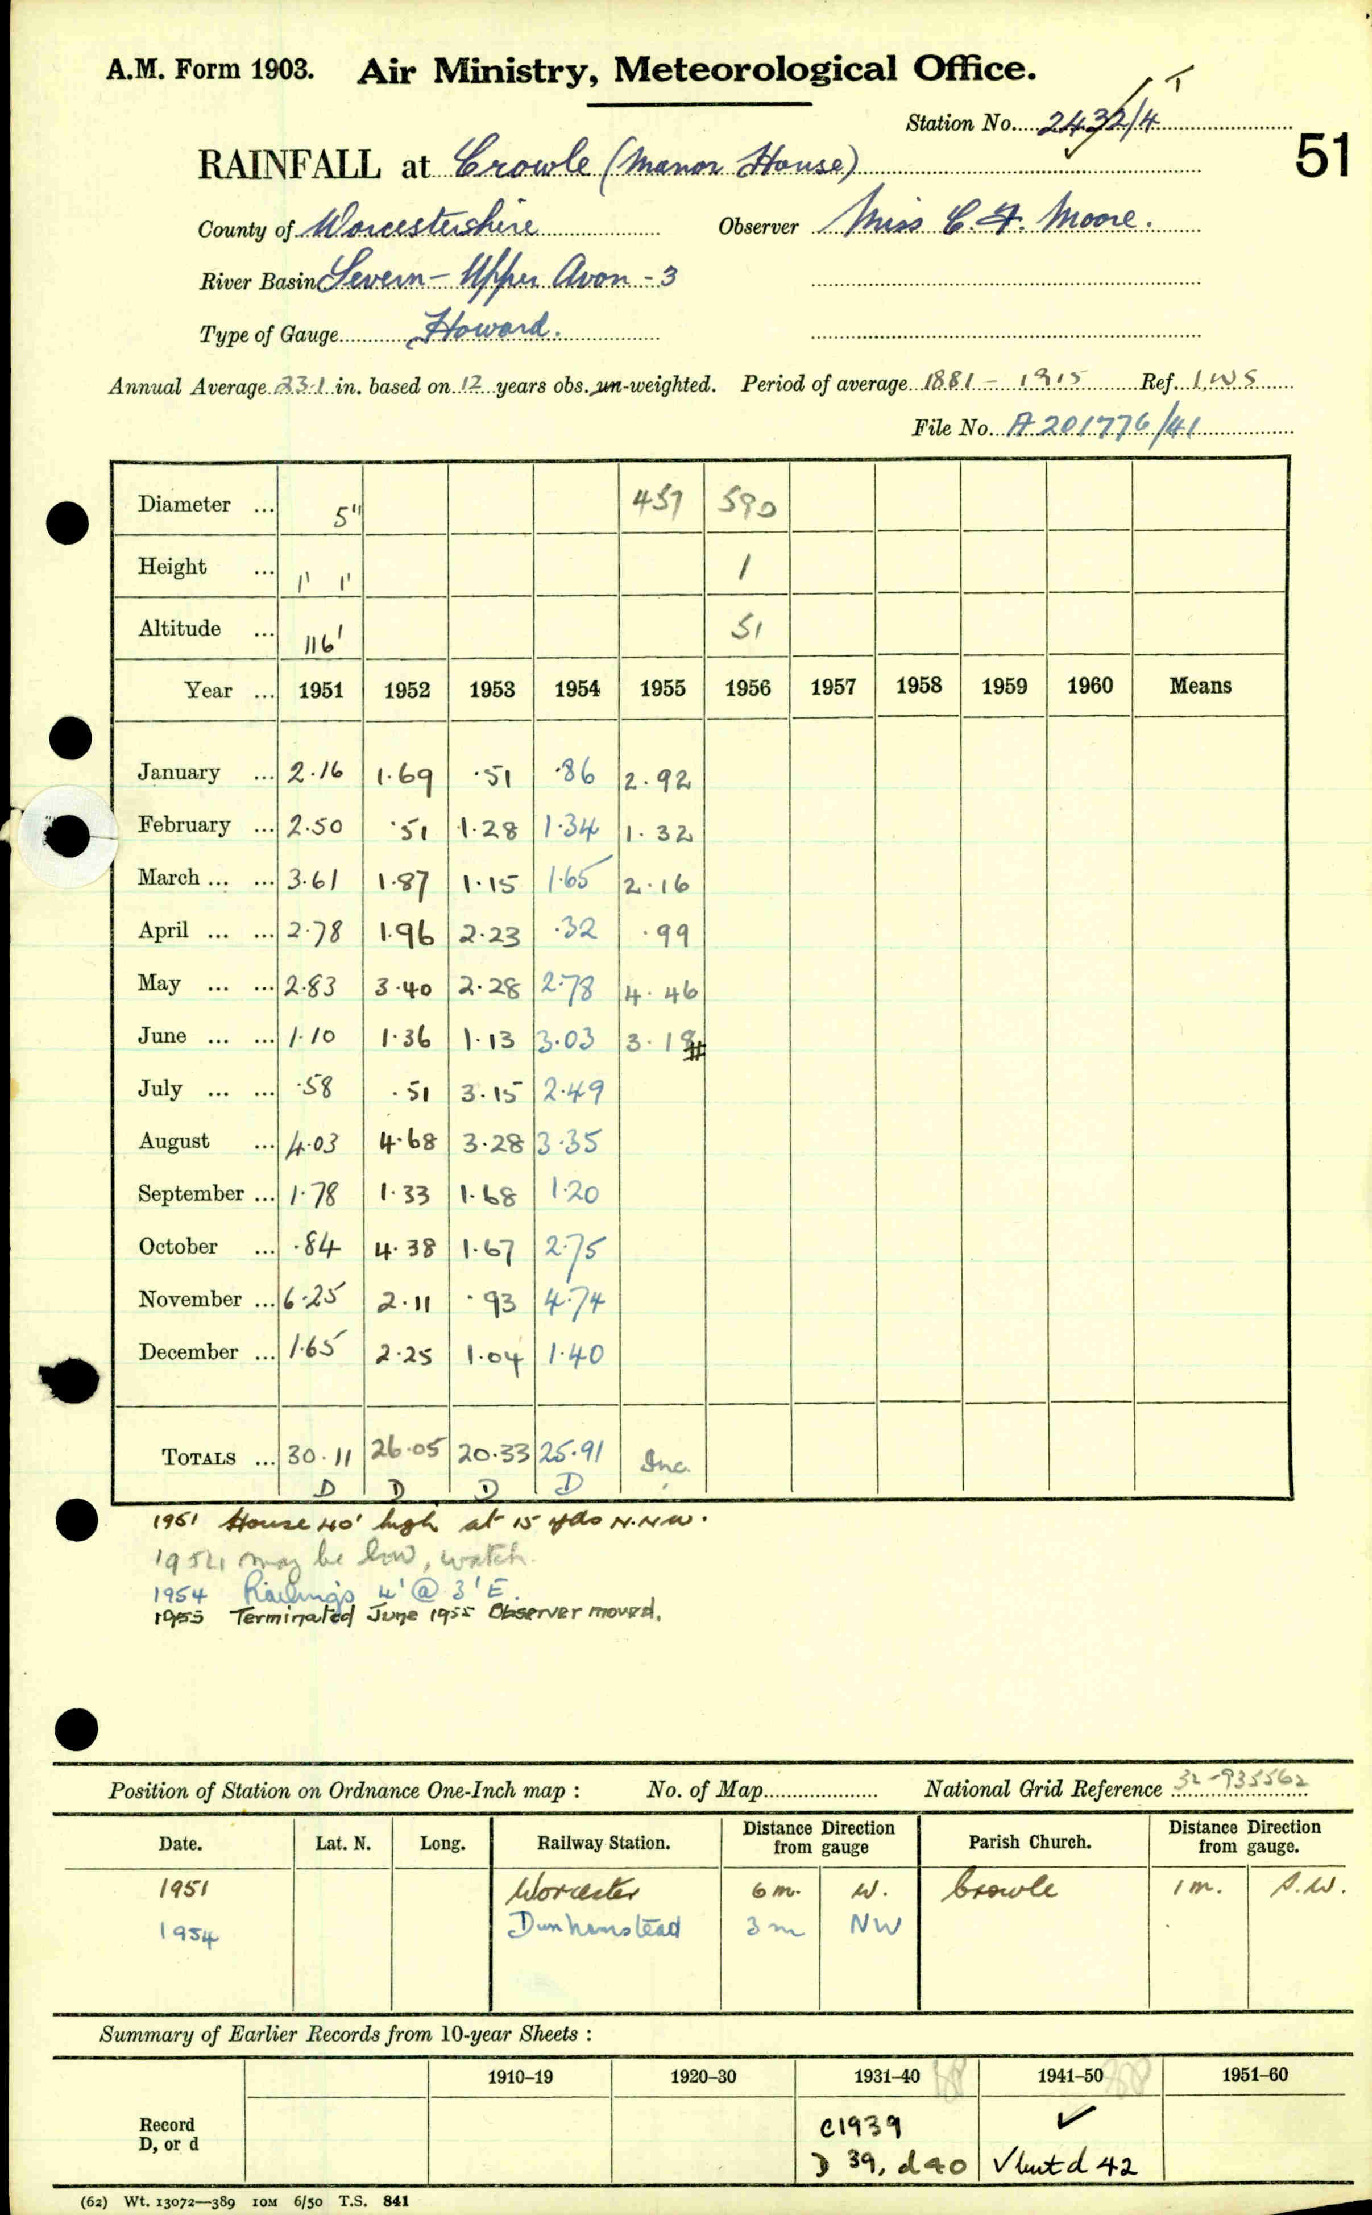 A.M. Form 1903. Air Ministry, Meteorological Office.
Station No. 2432/4
51
RAINFALL at Crowle (Manor House)
County of Worcestershire Observer Miss C. F. Moore.
River Basin Severn - Upper Avon - 3
Type of Gauge Howard.
Annual Average 23.1 in. based on 12 years obs. un-weighted. Period of average 1881 - 1915 Ref. I.W.S
File No. A 201776/41
Diameter ... 5" 457 590
Height ... 1' 1' 1
Altitude ... 116' 51
Year ... 1951 1952 1953 1954 1955 1956 1957 1958 1959 1960 Means
January ... 2.16 1.69 .51 .86 2.92
February ... 2.50 .51 1.28 1.34 1.32
March ... ... 3.61 1.87 1.15 1.65 2.16
April ... ... 2.78 1.96 2.23 .32 .99
May ... ... 2.83 3.40 2.28 2.78 4.46
June ... ... 1.10 1.36 1.13 3.03 3.18
July ... ... .58 .51 3.15 2.49
August ... 4.03 4.68 3.28 3.35
September ... 1.78 1.33 1.68 1.20
October ... .84 4.38 1.67 2.75
November ... 6.25 2.11 .93 4.74
December ... 1.65 2.25 1.04 1.40
TOTALS ... 30.11 26.05 20.33 25.91 Inc.
D D D D
1951 House 40' high at 15 yds N.N.W.
1954 may be low, watch.
1954 Railings 4' @ 3' E.
1955 Terminated June 1955 Observer moved.
Position of Station on Ordnance One-Inch map : No. of Map National Grid Reference 32-935562
Date. Lat. N. Long. Railway Station. Distance Direction from gauge Parish Church. Distance Direction from gauge.
1951 Worcester 6 m. W. Crowle 1 m. S.W.
1954 Dunhamstead 3 m NW
Summary of Earlier Records from 10-year Sheets :
1910–19 1920–30 1931–40 1941–50 1951–60
Record C1939 ✓
D, or d D 39, d 40 V but d 42
(62) Wt. 13072—389 10M 6/50 T.S. 841